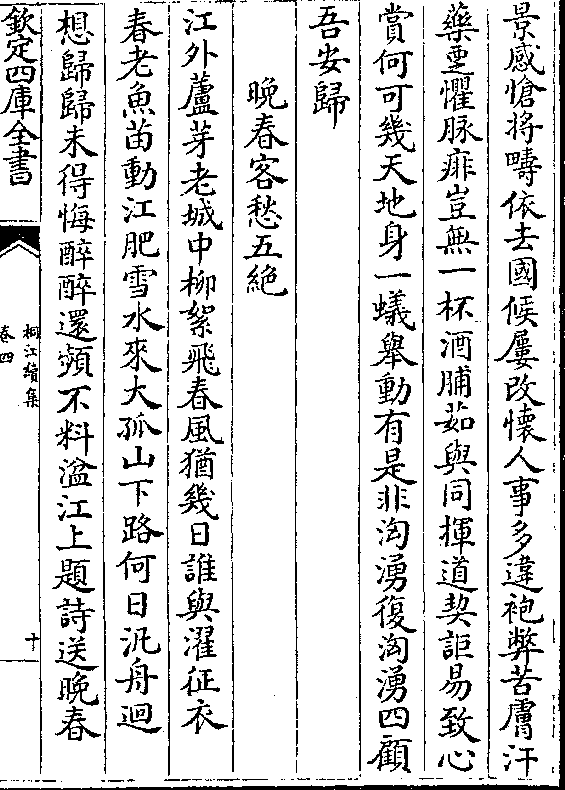 景感愴將疇依去國候屢改懷人事多違袍弊苦膚汗
藥垔懼脉痱豈無一杯酒脯茹與同揮道契詎易致心
賞何可幾天地身一蟻舉動有是非洶湧復洶湧四顧
吾安歸
晚春客愁五絶
江外蘆芽老城中柳絮飛春風猶幾日誰與濯征衣
春老魚苗動江肥雪水來大孤山下路何日汎舟迴
想歸歸未得悔醉醉還頻不料湓江上題詩送晚春
欽定四庫全書
桐江續集
卷四
十